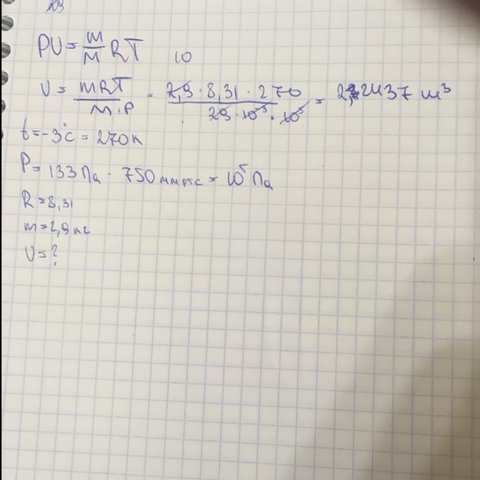 PV = m/M RT 10
V = mRT/M·P = 2,9 · 8,31 · 270/29 · 10⁻³ · 10⁵ = 2,2437 м³
t = -3°C = 270 К
P = 133 Па · 750 мм рт с = 10⁵ Па
R = 8,31
m = 2,9 кг
V = ?